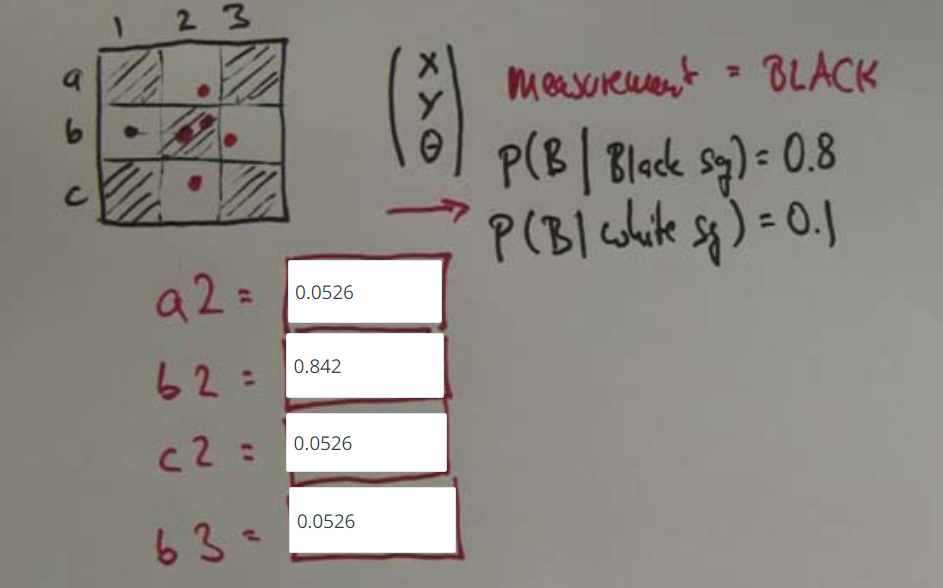 1 2 3
a
b
c
( X Y θ )
measurement = BLACK
P(B | Black sq) = 0.8
P(B | white sq) = 0.1
a2 = 0.0526
b2 = 0.842
c2 = 0.0526
b3 = 0.0526